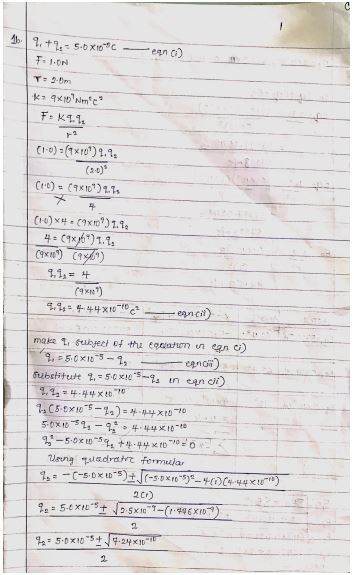 1
1b. q₁ + q₂ = 5.0×10⁻⁵C —— eqn (i)
F = 1.0N
r = 2.0m
K = 9×10⁹Nm²C²
F = Kq₁q₂
r²
(1.0) = (9×10⁹) q₁q₂
(2.0)²
(1.0) = (9×10⁹) q₁q₂
4
(1.0) × 4 = (9×10⁹) q₁q₂
4 = (9×10⁹) q₁q₂
(9×10⁹) (9×10⁹)
q₁q₂ = 4
(9×10⁹)
q₁q₂ = 4.44×10⁻¹⁰C² —— eqn (ii)
make q₁ subject of the equation in eqn (i)
q₁ = 5.0×10⁻⁵ - q₂ —— eqn (iii)
Substitute q₁ = 5.0×10⁻⁵ - q₂ in eqn (ii)
q₁q₂ = 4.44×10⁻¹⁰
q₂ (5.0×10⁻⁵ - q₂) = 4.44×10⁻¹⁰
5.0×10⁻⁵q₂ - q₂² = 4.44×10⁻¹⁰
q₂² - 5.0×10⁻⁵q₂ + 4.44×10⁻¹⁰ = 0
Using quadratic formula
q₂ = -(-5.0×10⁻⁵) ± √(-5.0×10⁻⁵)² - 4(1)(4.44×10⁻¹⁰)
2(1)
q₂ = 5.0×10⁻⁵ ± √2.5×10⁻⁹ - (1.776×10⁻⁹)
2
q₂ = 5.0×10⁻⁵ ± √7.24×10⁻¹⁰
2